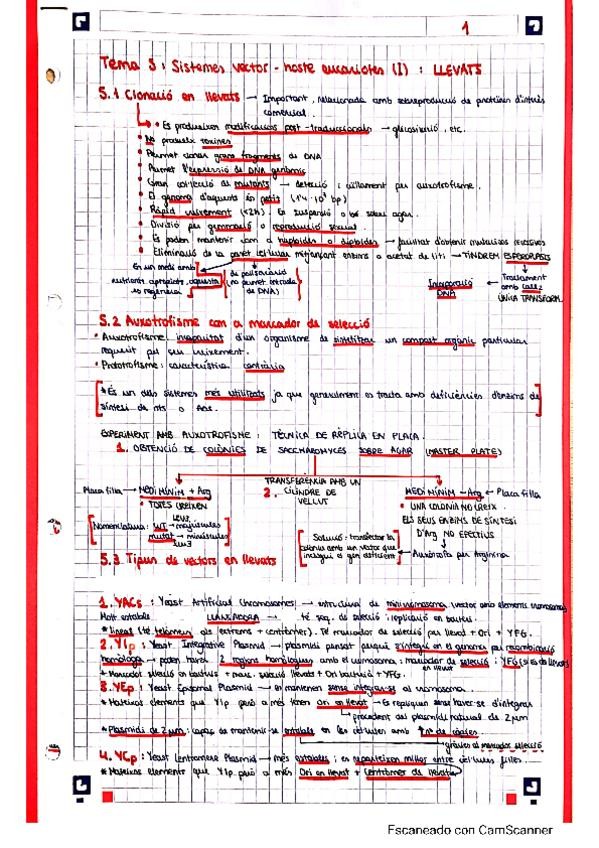 1
Tema 5: Sistemes vector-hoste eucariotes (I): LLEVATS
5.1 Clonació en llevats → Important, relacionada amb sobreproducció de proteïnes d'interès
comercial.
• Es produeixen modificacions post-traduccionals → glicosilació, etc.
• No produeix toxines
• Permet clonar grans fragments de DNA
• Permet l'expressió de DNA genòmic
• Gran col·lecció de mutants → detecció i aïllament per auxotrofisme.
• El genoma d'aquests és petit
• Ràpid creixement (<2h). En suspensió o bé sobre agar.
• Divisió per gemmació o reproducció sexual.
• Es poden mantenir com a haploides o diploides → facilitat d'obtenir mutacions recessives
• Eliminació de la paret cel·lular mitjançant enzims o acetat de liti → TINDREM ESFEROPLASTS
En un medi amb
nutrients apropiats, aquesta
es regenera
de polisacàrid
(no permet entrada
de DNA)
Incorporació
DNA
Tractament
amb CaCl2
ÚNICA TRANSFORM.
5.2 Auxotrofisme com a marcador de selecció
• Auxotrofisme: incapacitat d'un organisme de sintetitzar un compost orgànic particular
requerit pel seu creixement.
• Prototrofisme: característica contrària
*És un dels sistemes més utilitzats ja que generalment es tracta amb deficiències d'enzims de
síntesi de nts o Aas.
EXPERIMENT AMB AUXOTROFISME: TÈCNICA DE RÈPLICA EN PLACA.
1. OBTENCIÓ DE COLÒNIES DE SACCHAROMYCES SOBRE AGAR (MASTER PLATE)
TRANSFERÈNCIA AMB UN
2. CILINDRE DE
VELLUT
Placa filla → MEDI MÍNIM + Arg
• TOTES CREIXEN
Nomenclatura: WT → majúscules
mutat → minúscules
MEDI MÍNIM - Arg ← Placa filla
• UNA COLONIA NO CREIX.
ELS SEUS ENZIMS DE SÍNTESI
D'Arg NO EFECTIUS
Auxòtrofa per Arginina
Solució: transfectar la
colònia amb un vector que
inclogui el gen deficient
5.3 Tipus de vectors en llevats
1. YACs: Yeast Artificial Chromosomes → estructura de minicromosoma, vector amb elements cromosòmics
Molt estable LLANÇADORA → té seq. de selecció i replicació en bacteris.
* lineal (té telòmers als extrems + centròmer). Té marcador de selecció per llevat + Ori + YFG.
2. YIp: Yeast Integrative Plasmid → plasmidi pensat perquè s'integri en el genoma per recombinació
homòloga → poden haver 2 regions homòlogues amb el cromosoma: marcador de selecció i YFG (si és de llevat)
en llevat
* Marcador selecció en bacteris + marc. selecció llevats + Ori bacterià + YFG.
3. YEp: Yeast Episomal Plasmid → en mantenen sense integrar-se al cromosoma.
* Mateixos elements que YIp però a més tenen Ori en llevat → Es repliquen sense haver-se d'integrar
procedent del plasmidi natural de 2μm
* Plasmidis de 2μm: capaços de mantenir-se estables en les cèl·lules amb ↑nº de còpies
gràcies al marcador selecció
4. YCp: Yeast Centromere Plasmid → més estables i en reparteixen millor entre cèl·lules filles.
* Mateixos elements que YIp però a més Ori en llevat + Centròmer de llevat.
Escaneado con CamScanner